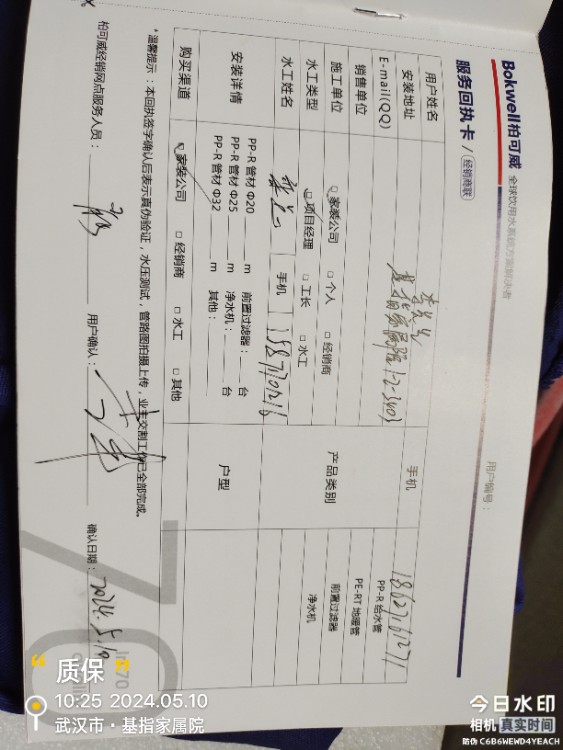 Bokwell柏可威 全球饮用水系统方案解决者
服务回执卡 / 经销商联
用户编号：
用户姓名 李先生 手机 18627161271
安装地址 基指家属院1-2-3403
E-mail(QQ)
销售单位
施工单位 □ 家装公司 □ 个人 □ 经销商
水工类型 □ 项目经理 □ 工长 □ 水工
产品类别
PP-R 给水管
PE-RT 地暖管
前置过滤器
净水机
水工姓名 手机
安装详情
PP-R 管材 Φ20 m 前置过滤器： 台
PP-R 管材 Φ25 m 净水机： 台
PP-R 管材 Φ32 m 其他：
户型
购买渠道 □ 家装公司 □ 经销商 □ 水工 □ 其他
* 温馨提示：本回执签字确认后表示真伪验证，水压测试，管路图拍摄上传，业主交割工作已全部完成。
柏可威经销网点服务人员： 用户确认： 确认日期： 2024.5.10
“ 质保 ”
10:25 2024.05.10
武汉市·基指家属院
今日水印
相机 真实时间
防伪 C6B6WEWD4YEACH